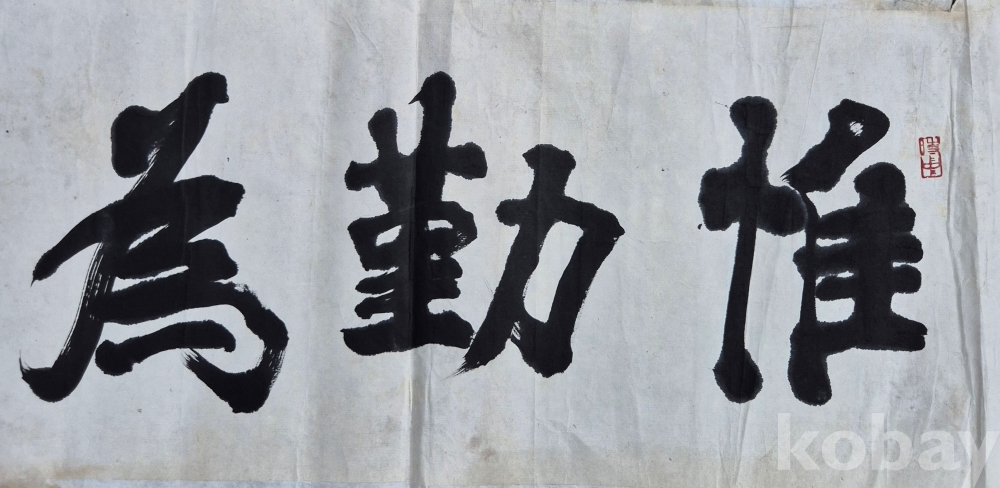 惟勤為
kobay